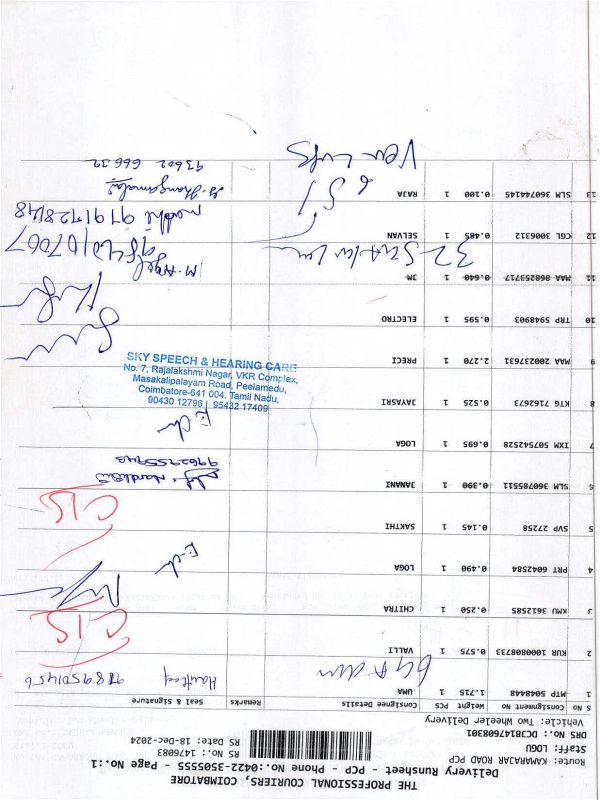 THE PROFESSIONAL COURIERS, COIMBATORE
Delivery Runsheet - PCP - Phone No.:0422-3505555 - Page No.:1
Route: KAMARAJAR ROAD PCP
Staff: LOGU
DRS No.: DCJB1476083O1
Vehicle: Two Wheeler Delivery
RS No.: 1476083
RS Date: 18-Dec-2024
S No Consignment No Weight PCS Consignee Details Remarks Seal & Signature
1 MTP 5048448 1.715 1 UMA 9789501456
2 KUR 100008733 0.575 1 VALLI CIS
3 KMU 3612585 0.250 1 CHITRA
4 PRT 6042584 0.490 1 LOGA
5 SVP 27258 0.145 1 SAKTHI CIS
6 SLM 360785511 0.390 1 JANANI
7 IXM 507542528 0.695 1 LOGA
8 KTG 7162673 0.525 1 JAYASRI
SKY SPEECH & HEARING CARE
No. 7, Rajalakshmi Nagar, VKR Complex,
Masakalipalayam Road, Peelamedu,
Coimbatore-641 004. Tamil Nadu,
90430 12796 | 95432 17409
9 MAA 200237631 2.270 1 PRECI
10 TRP 5948903 0.595 1 ELECTRO
11 MAA 868253717 0.640 1 JM
12 CGL 3006312 0.485 1 SELVAN
9842107007
13 SLM 360744145 0.100 1 RAJA 651
madhi 9791728148
93602 66632